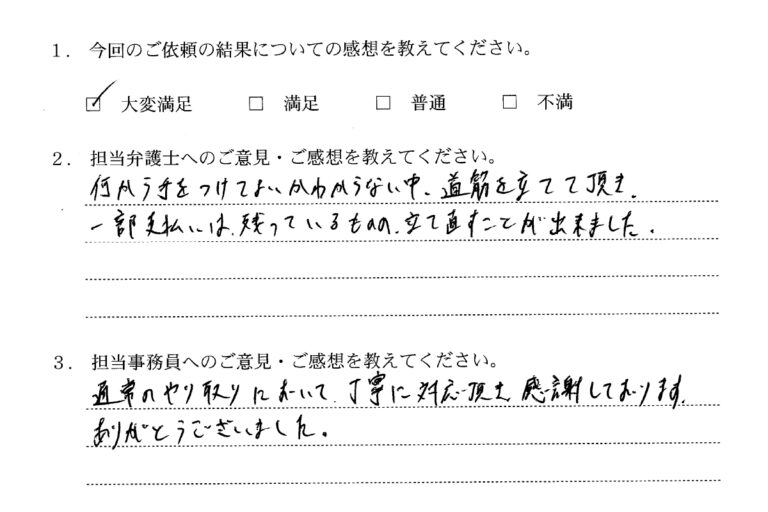 1. 今回のご依頼の結果についての感想を教えてください。
☑ 大変満足 □ 満足 □ 普通 □ 不満
2. 担当弁護士へのご意見・ご感想を教えてください。
何から手をつけてよいかわからない中、道筋を立てて頂き、
一部支払いは、残っているものの、立て直すことが出来ました。
3. 担当事務員へのご意見・ご感想を教えてください。
通常のやり取りにおいて、丁寧に対応頂き感謝しております。
ありがとうございました。